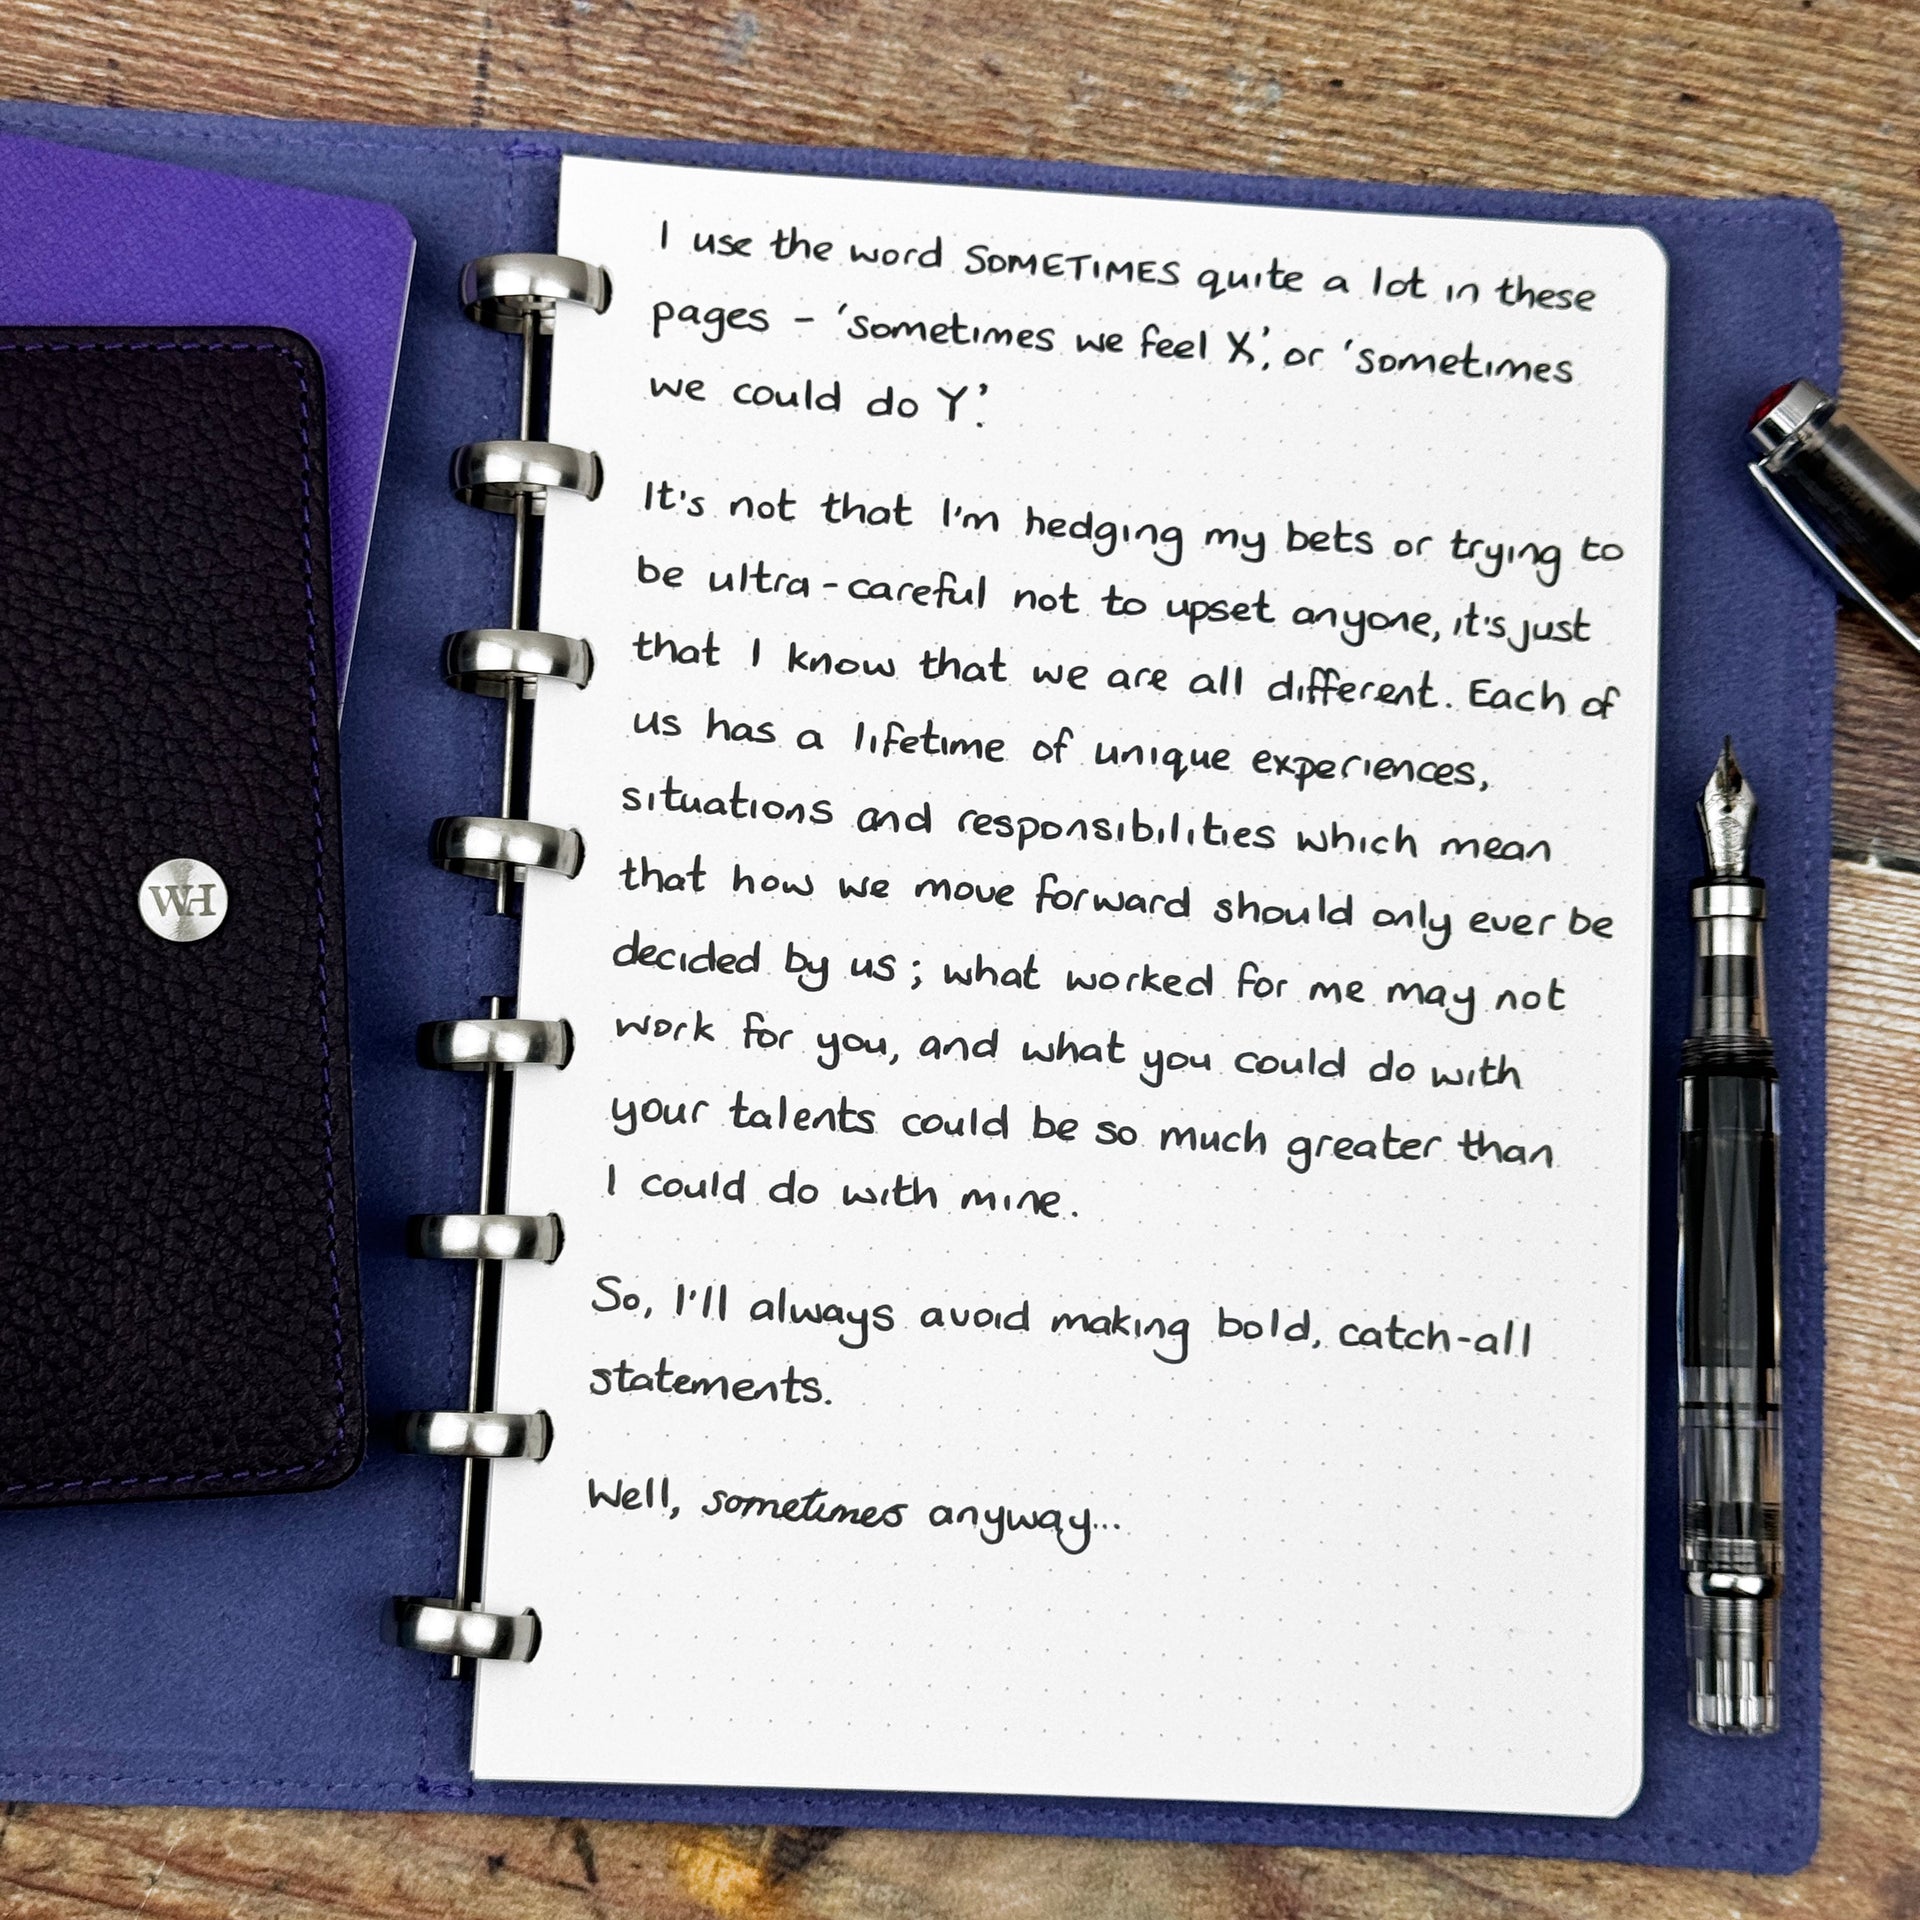 WH
I use the word SOMETIMES quite a lot in these
pages - 'sometimes we feel X', or 'sometimes
we could do Y'.
It's not that I'm hedging my bets or trying to
be ultra-careful not to upset anyone, it's just
that I know that we are all different. Each of
us has a lifetime of unique experiences,
situations and responsibilities which mean
that how we move forward should only ever be
decided by us; what worked for me may not
work for you, and what you could do with
your talents could be so much greater than
I could do with mine.
So, I'll always avoid making bold, catch-all
statements.
Well, sometimes anyway...